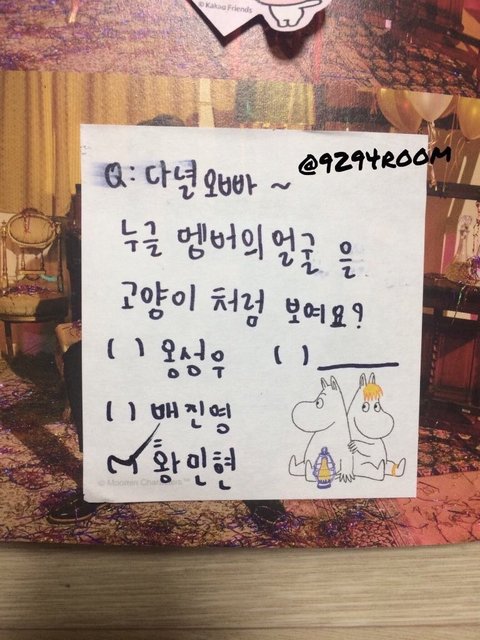 © Kakao Friends
@9294ROOM
Q: 다녈 오빠 ~
누글 멤버의 얼굴 을
고양이 처럼 보여요?
( ) 옹성우 ( ) ______
( ) 배진영
(✓) 황민현
© Moomin Characters™